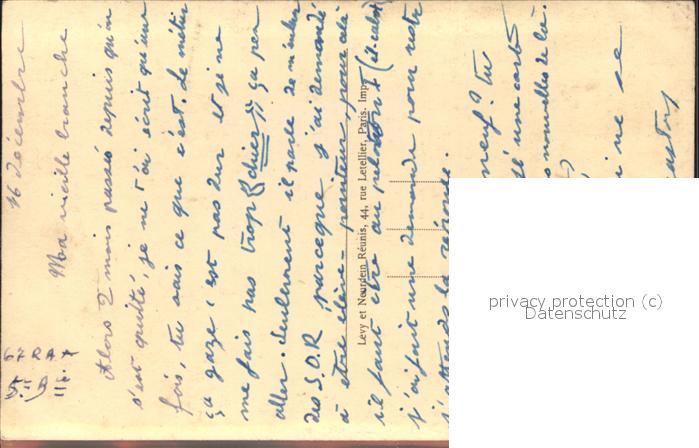 16 décembre
Ma vieille branche
Alors 2 mois passés depuis qu'on
s'est quitté, je ne t'ai écrit qu'une
fois, tu sais ce que c'est. Le métier
ça gaze, c'est pas dur et je ne
me fais pas trop chier)) ça peu
aller. Seulement il parle de m'
des S.O.R parceque j'ai demandé
à être élève-pointeur, pour cela
il faut être au peloton 1 (él.
j'ai fait une demande pour reste
j'attends la réponse.
neuf? tu
é une carte
s nouvelles de là.
i ne se
67 RA
5e B
Lévy et Neurdein Réunis, 44, rue Letellier, Paris. Imp.
privacy protection (c)
Datenschutz